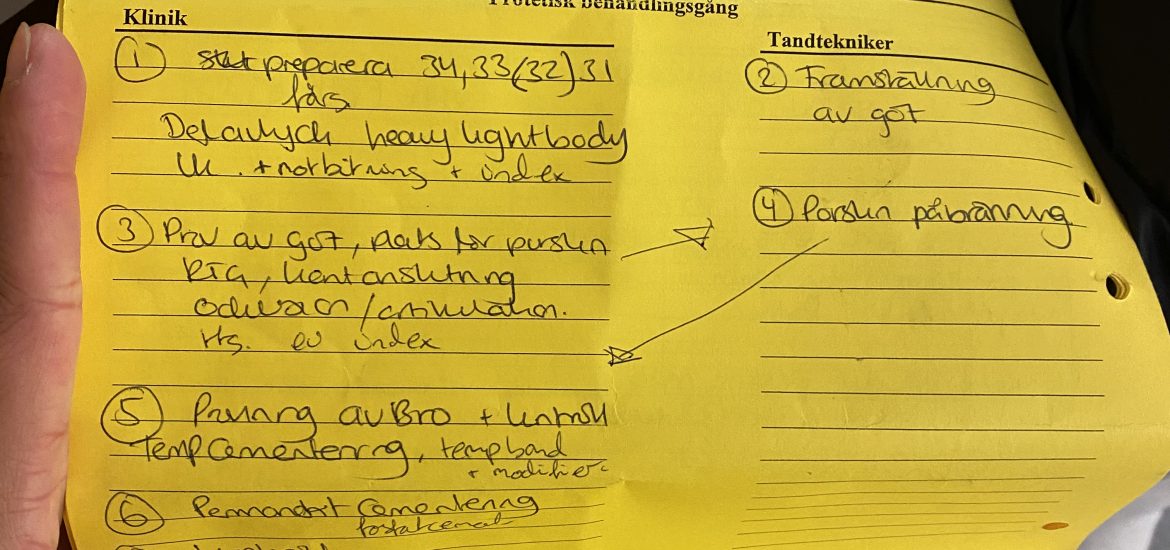 Protetisk behandlingsgång
Klinik
① preparera 34,33(32)31
heavy lightbody
UK. + motbitning + index
③ Prov av got, plats för porslin
RTG, kantanslutning
/artikulation.
ev index
⑤ Provning av Bro + kontroll
Tempcementering, tempbond
+ modifier
⑥ Permanent Cementering
fosfatcement
Tandtekniker
② Framställning
av got
④ Porslin påbränning